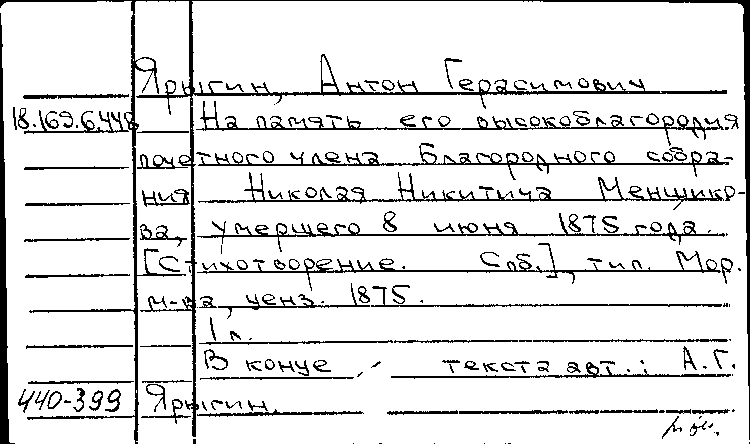 Ярыгин, Антон Герасимович
18.169.6.448 На память его высокоблагородия
почетного члена Благородного собра-
ния Николая Никитича Меншико-
ва, умершего 8 июня 1875 года.
[Стихотворение. Спб.], тип. Мор.
м-ва, ценз. 1875.
1 л.
В конце текста авт.: А.Г.
440-399 Ярыгин.